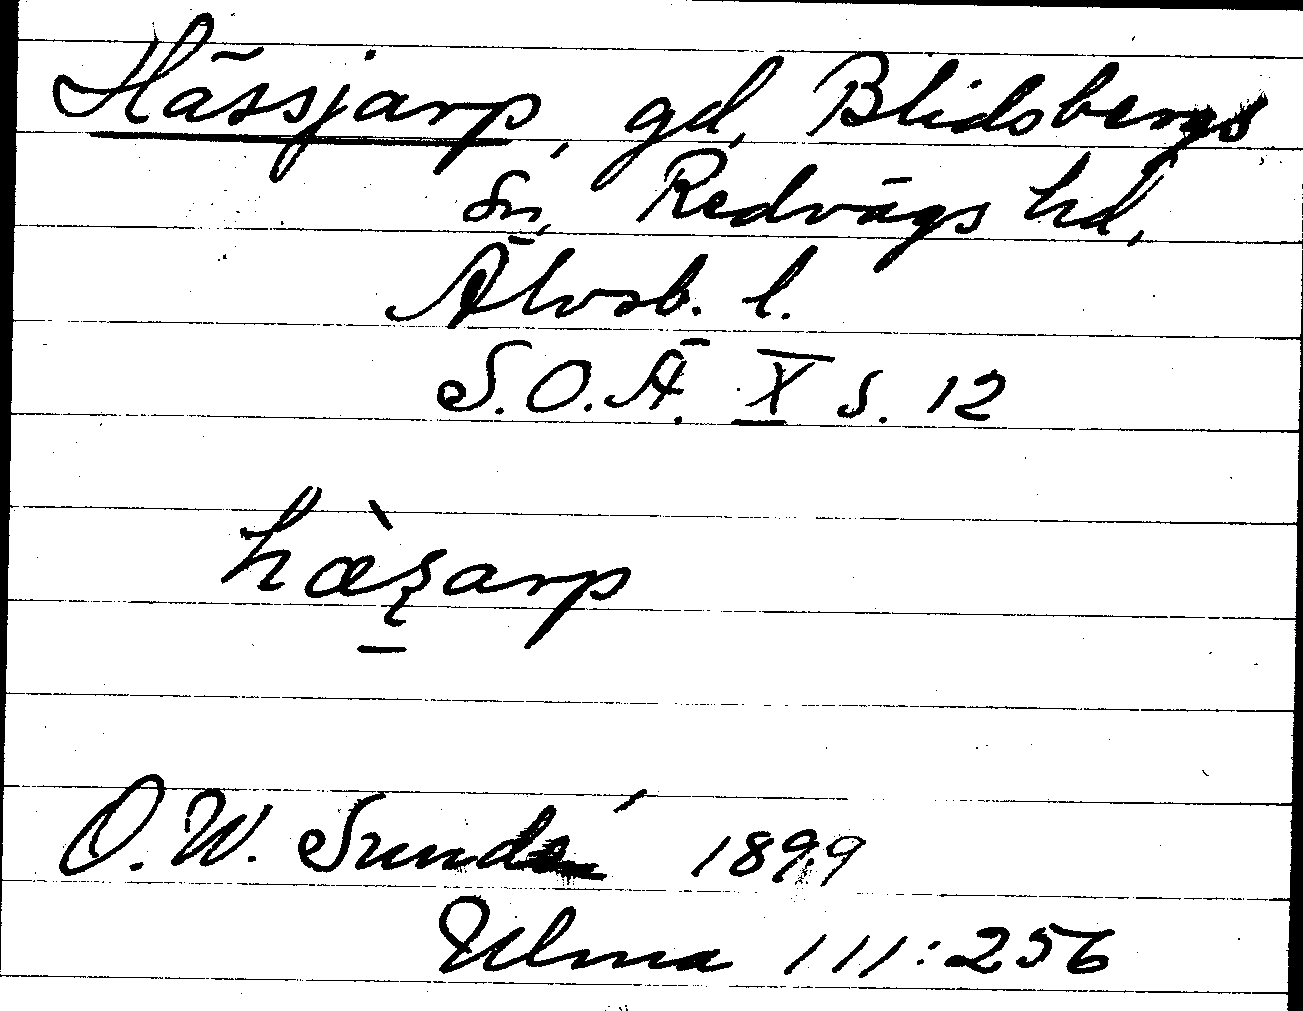 Hässjarp, gd, Blidsbergs
sn, Redvägs hd,
Älvsb. l.
S.O.Ä. X s. 12
O.W. Sundé 1899
Ulma 111:256